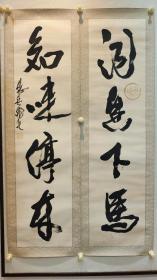 闻香下马
知味停车